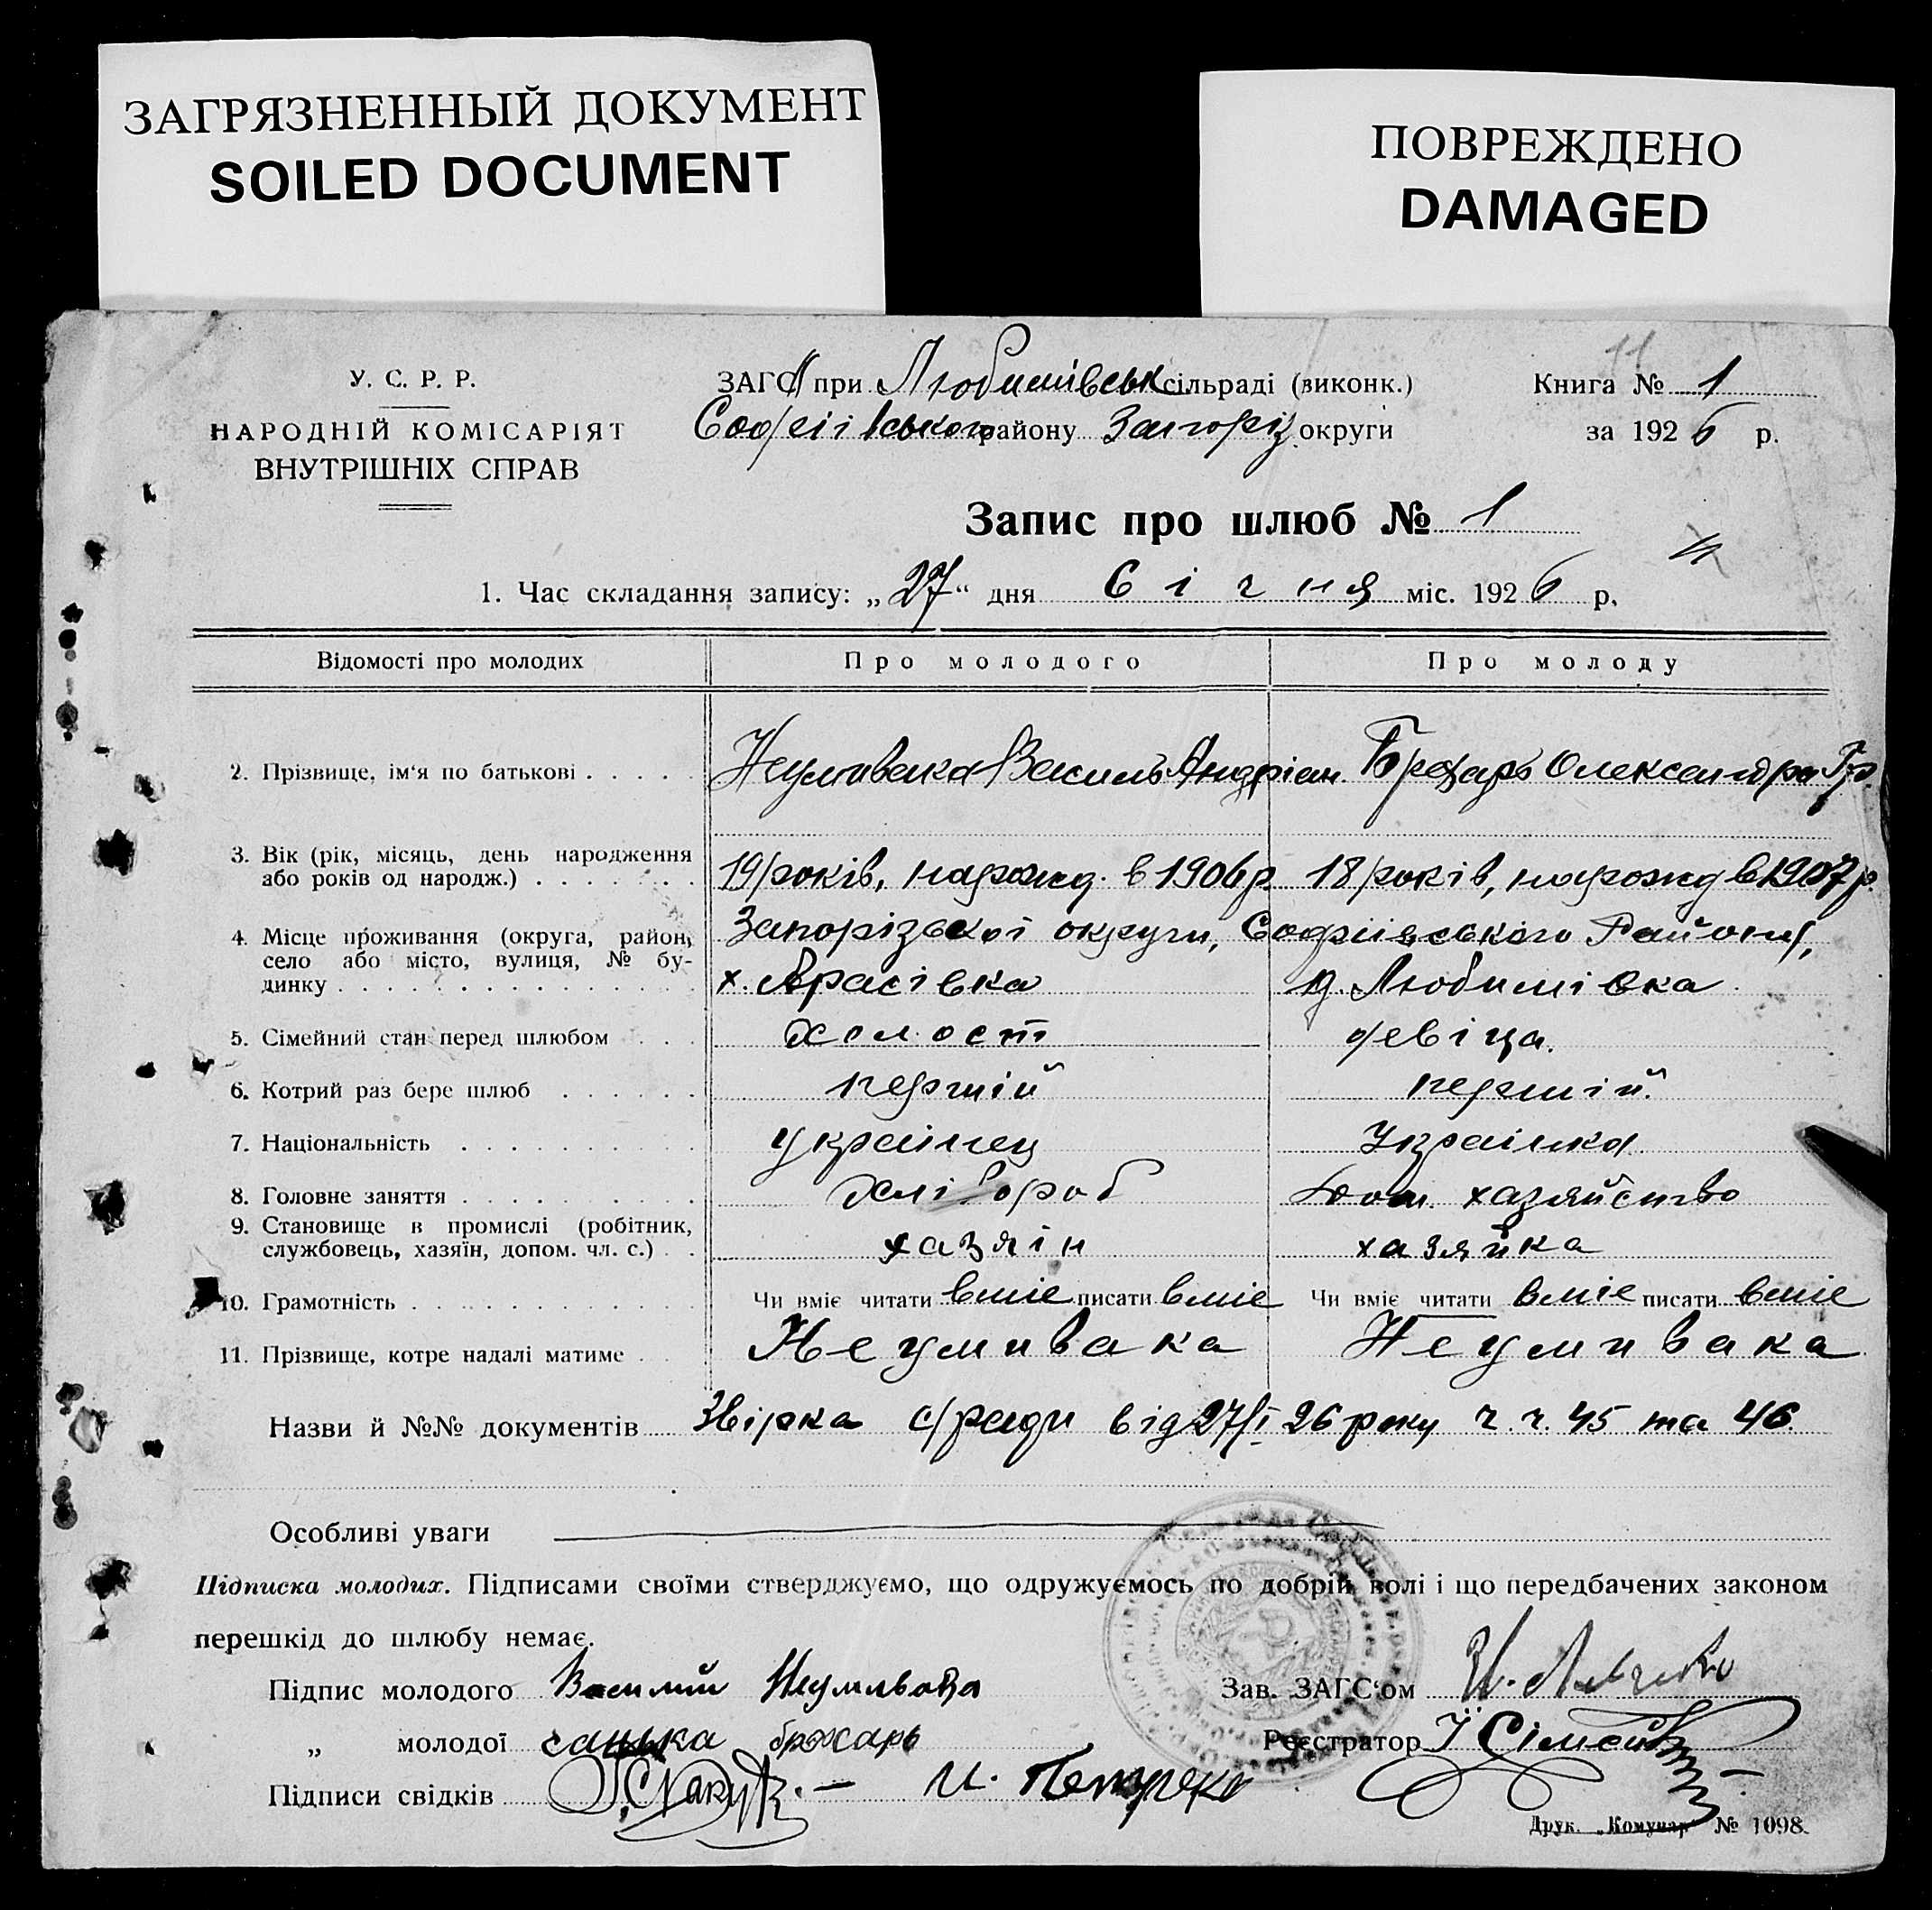 ЗАГРЯЗНЕННЫЙ ДОКУМЕНТ
SOILED DOCUMENT
ПОВРЕЖДЕНО
DAMAGED
11
У. С. Р. Р.
НАРОДНІЙ КОМІСАРІЯТ
ВНУТРІШНІХ СПРАВ
ЗАГС при Любимівськ сільраді (виконк.)
Софіївського району Запоріз. округи
Книга № 1
за 1926 р.
Запис про шлюб № 1
1. Час складання запису: „27“ дня Січня міс. 1926 р.
Відомості про молодих Про молодого Про молоду
2. Прізвище, ім‘я по батькові . . . . . Неумивака Василь Андріян Олександра Гр.
3. Вік (рік, місяць, день народження
або років од народж.) . . . . . . . 19 років, нарожд. в 1906 р. 18 років, нарожд в 1907 р.
4. Місце проживання (округа, район,
село або місто, вулиця, № бу-
динку . . . . . . . . . . . . . . .
Запорізької округи, Софіївського Району,
х. д. Любимівка
5. Сімейний стан перед шлюбом . . . холост девіца.
6. Котрий раз бере шлюб . . . . . . першій першій.
7. Національність . . . . . . . . . . українец Українка
8. Головне заняття . . . . . . . . . . хлібороб Дом. хазяйство
9. Становище в промислі (робітник,
службовець, хазяїн, допом. чл. с.) . . хазяін хазяйка
10. Грамотність . . . . . . . . . . . . Чи вміє читати вміє писати вміє Чи вміє читати вміє писати вміє
11. Прізвище, котре надалі матиме . . Неумивака Неумивака
Назви й №№ документів Звірка с/ради від 27/I 26 року ч. ч. 45 та 46.
Особливі уваги
Підписка молодих. Підписами своїми стверджуємо, що одружуємось по добрій волі і що передбачених законом
перешкід до шлюбу немає.
Підпис молодого Василий
Зав. ЗАГС‘ом
„ молодої
Реєстратор
Підписи свідків
Друк. „Комунар“ № 1098.